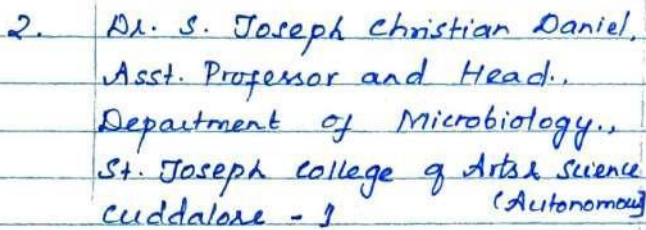 2. Dr. S. Joseph Christian Daniel,
Asst. Professor and Head.,
Department of Microbiology.,
St. Joseph College of Arts & Science
Cuddalore - 1 (Autonomous)